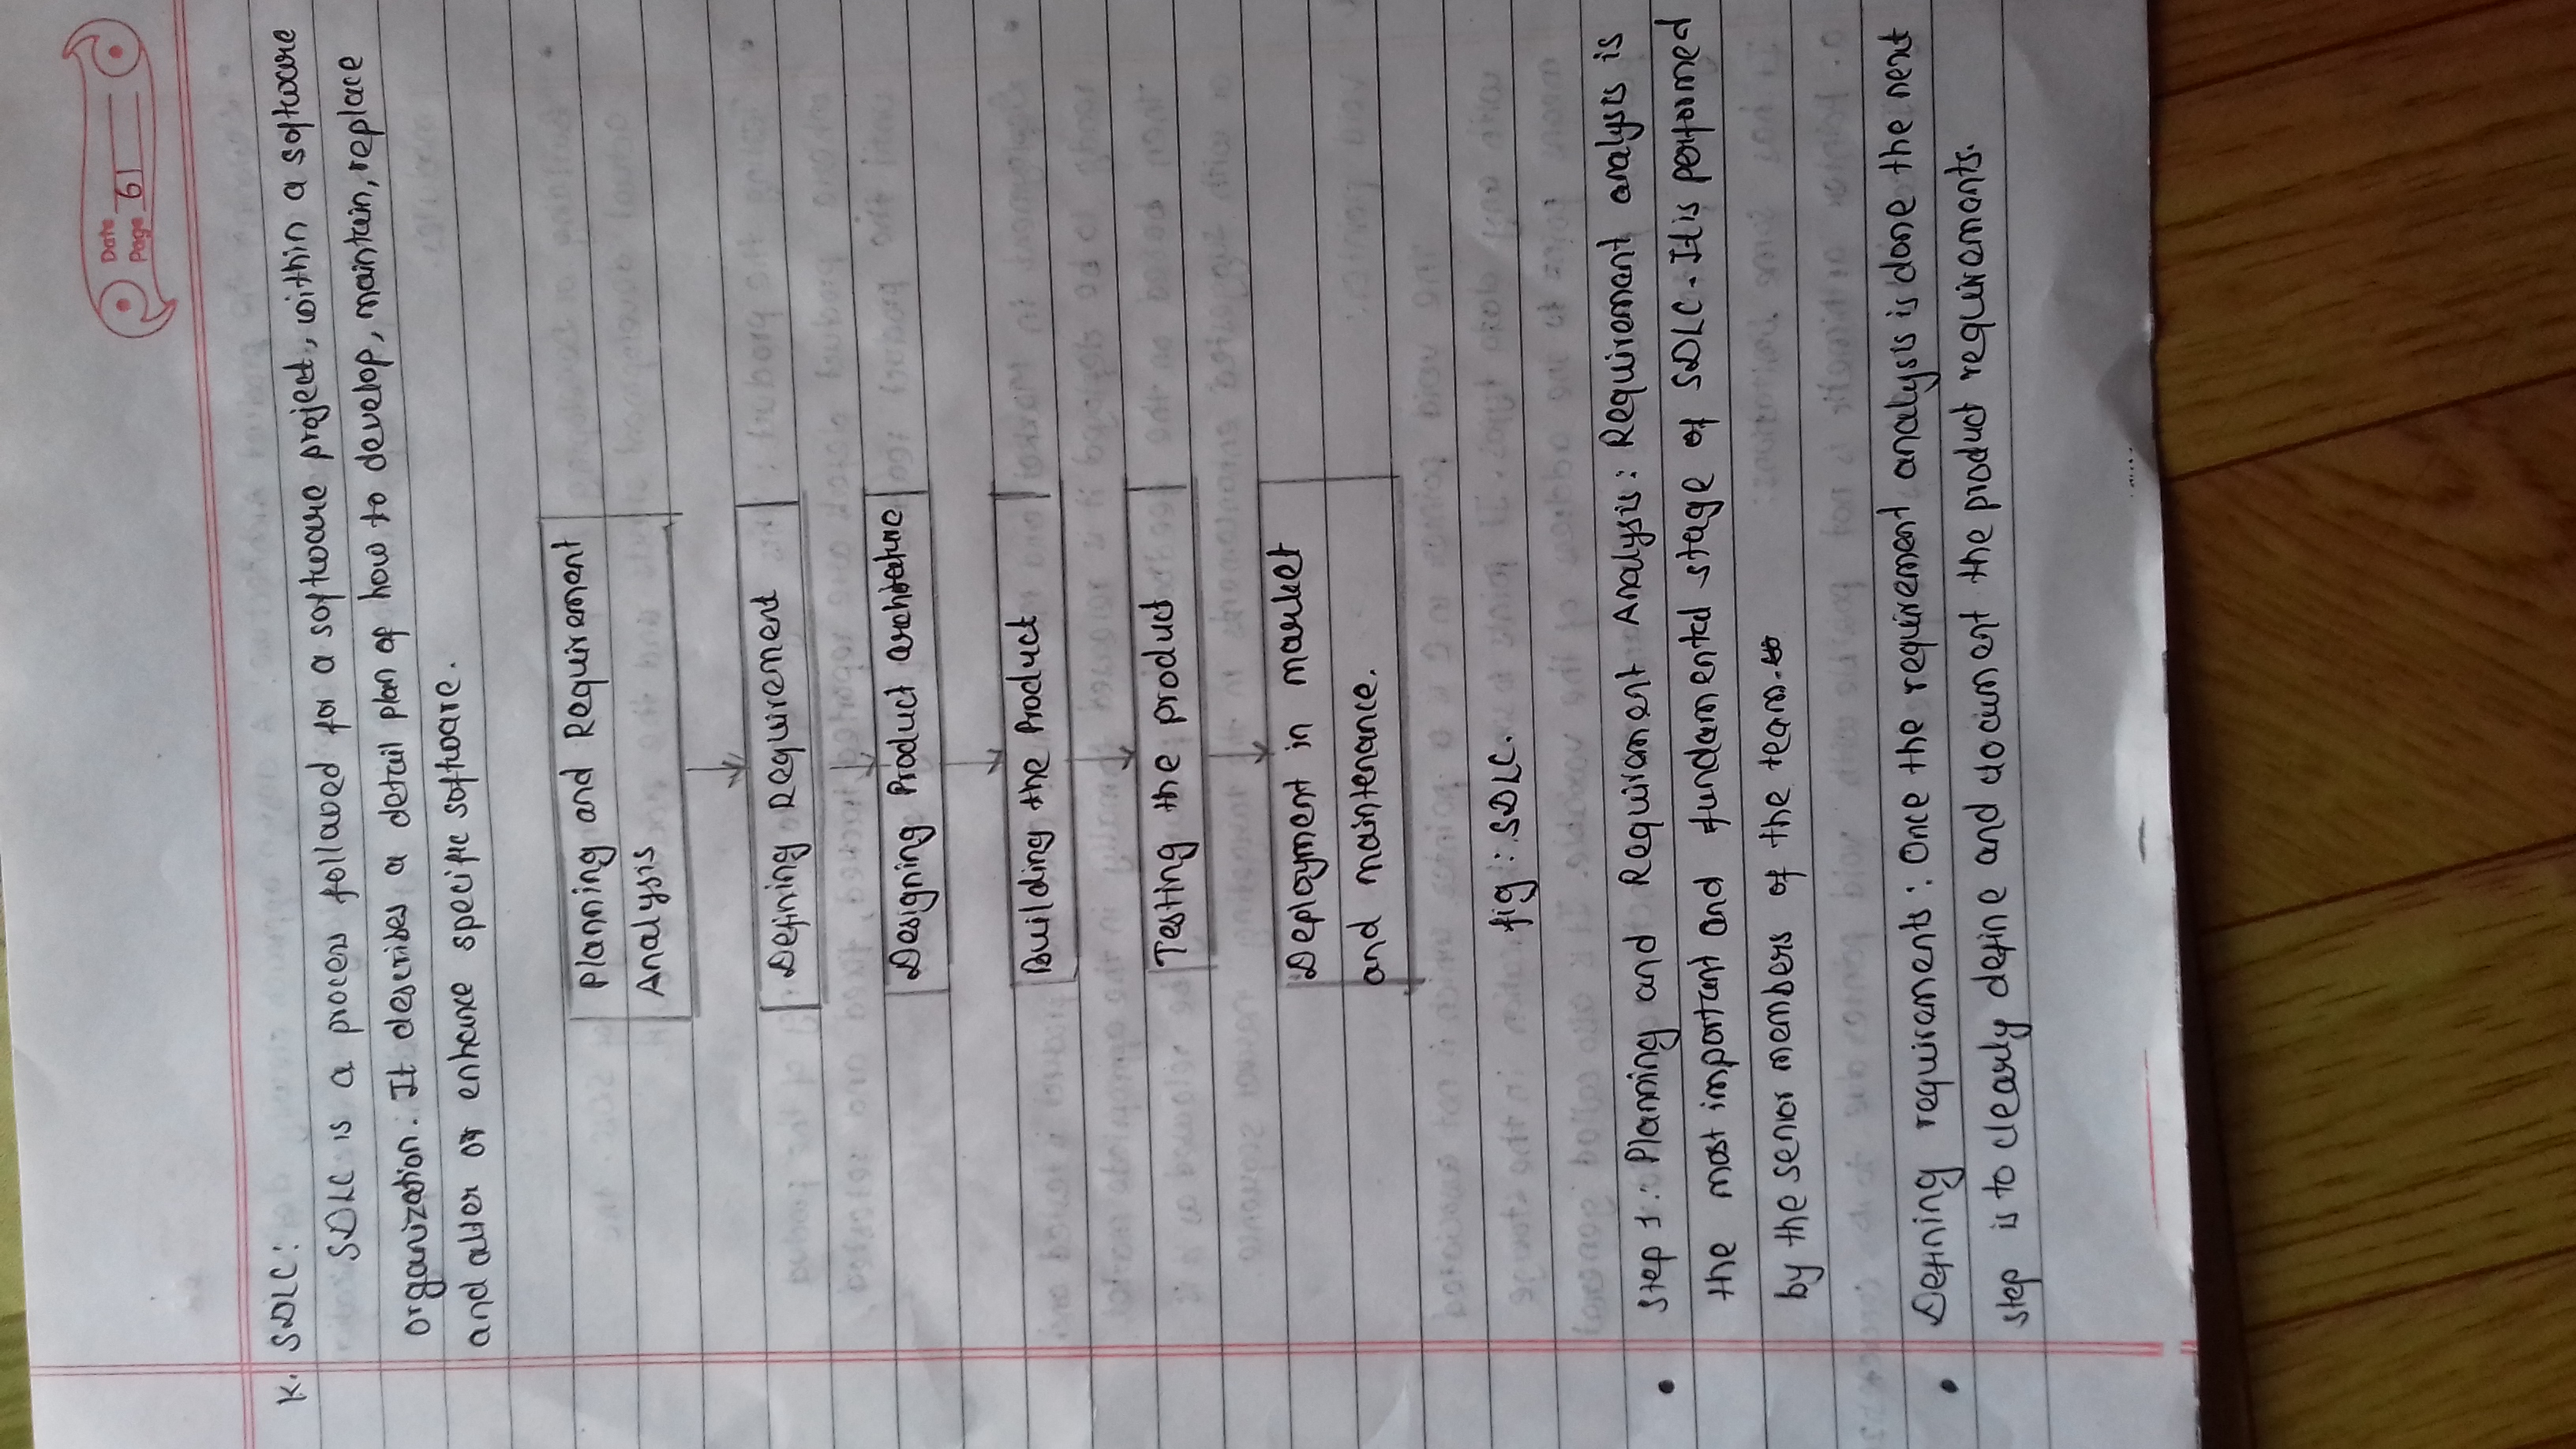 Date
Page 61
K. SDLC:
SDLC is a process followed for a software project, within a software
organization. It describes a detail plan of how to develop, maintain, replace
and alter or enhance specific software.
Planning and Requirement
Analysis
Defining Requirement
Designing Product architecture
Building the Product
Testing the product
Deployment in market
and maintenance.
fig: SDLC.
• Step 1: Planning and Requirement Analysis: Requirement analysis is
the most important and fundamental stage of SDLC. It is performed
by the senior members of the team.
• Defining requirements: Once the requirement analysis is done the next
step is to clearly define and document the product requirements.